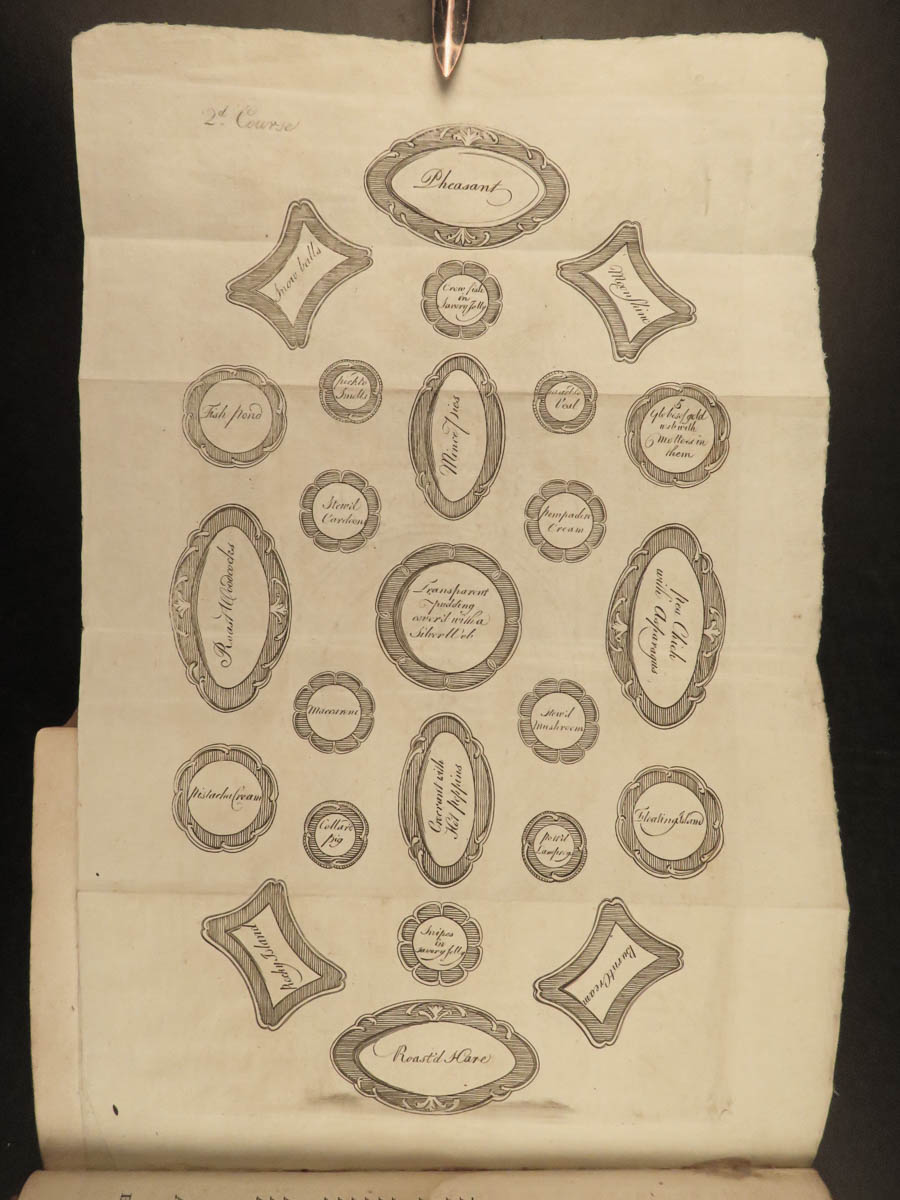 2d. Course
Pheasant
Snow balls
Crow fish
in
Savory Jelly
Moon Shine
Fish pond
Smelts
Mince pies
Veal
5
Globes of gold
web with
Mottoes in
them
Stew'd
Cardoon
Pompadore
Cream
Roast Woodcocks
Transparent
pudding
cover'd with a
Silver Web
Pea Chick
with Asparagus
Maccaroni
Stew'd
Mushroom
Pistacha Cream
Collard
pig
Crocrant with
Hot pippins
Pott'd
Lamprey
Floating Island
Rocky Island
Snipes
in
savory Jelly
Burnt Cream
Roast'd Hare